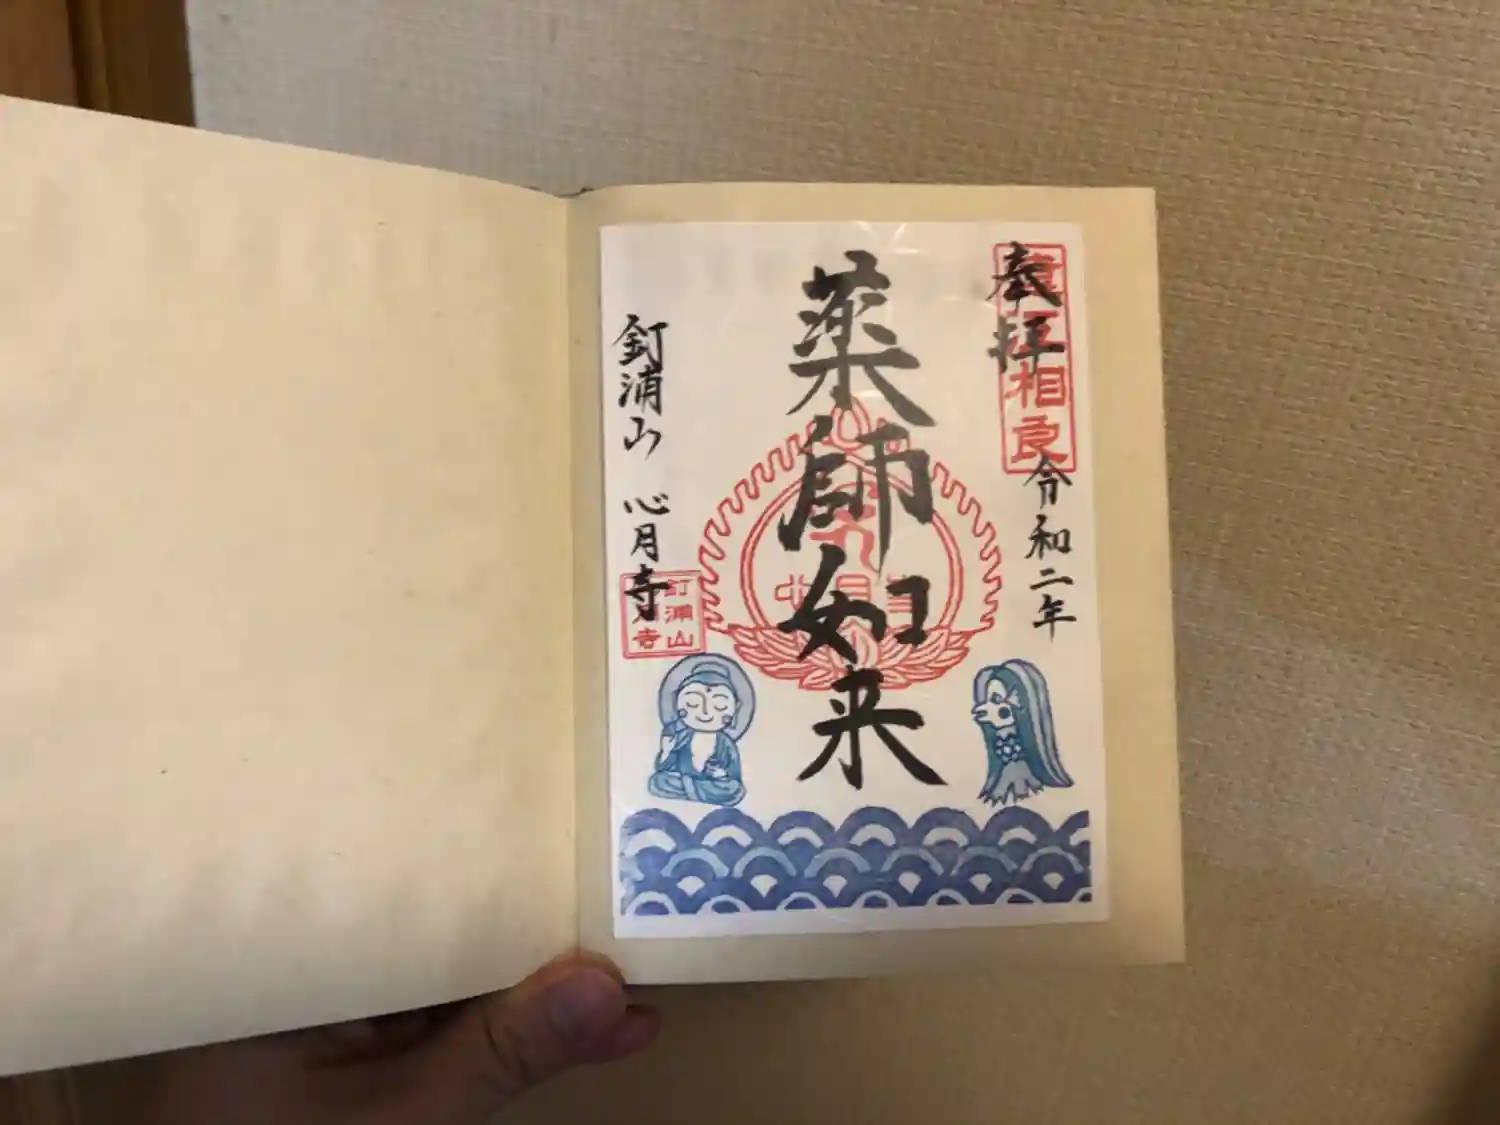 奉拝
遠江相良
令和二年
薬師如来
心月寺
釘浦山
心月寺
釘浦山